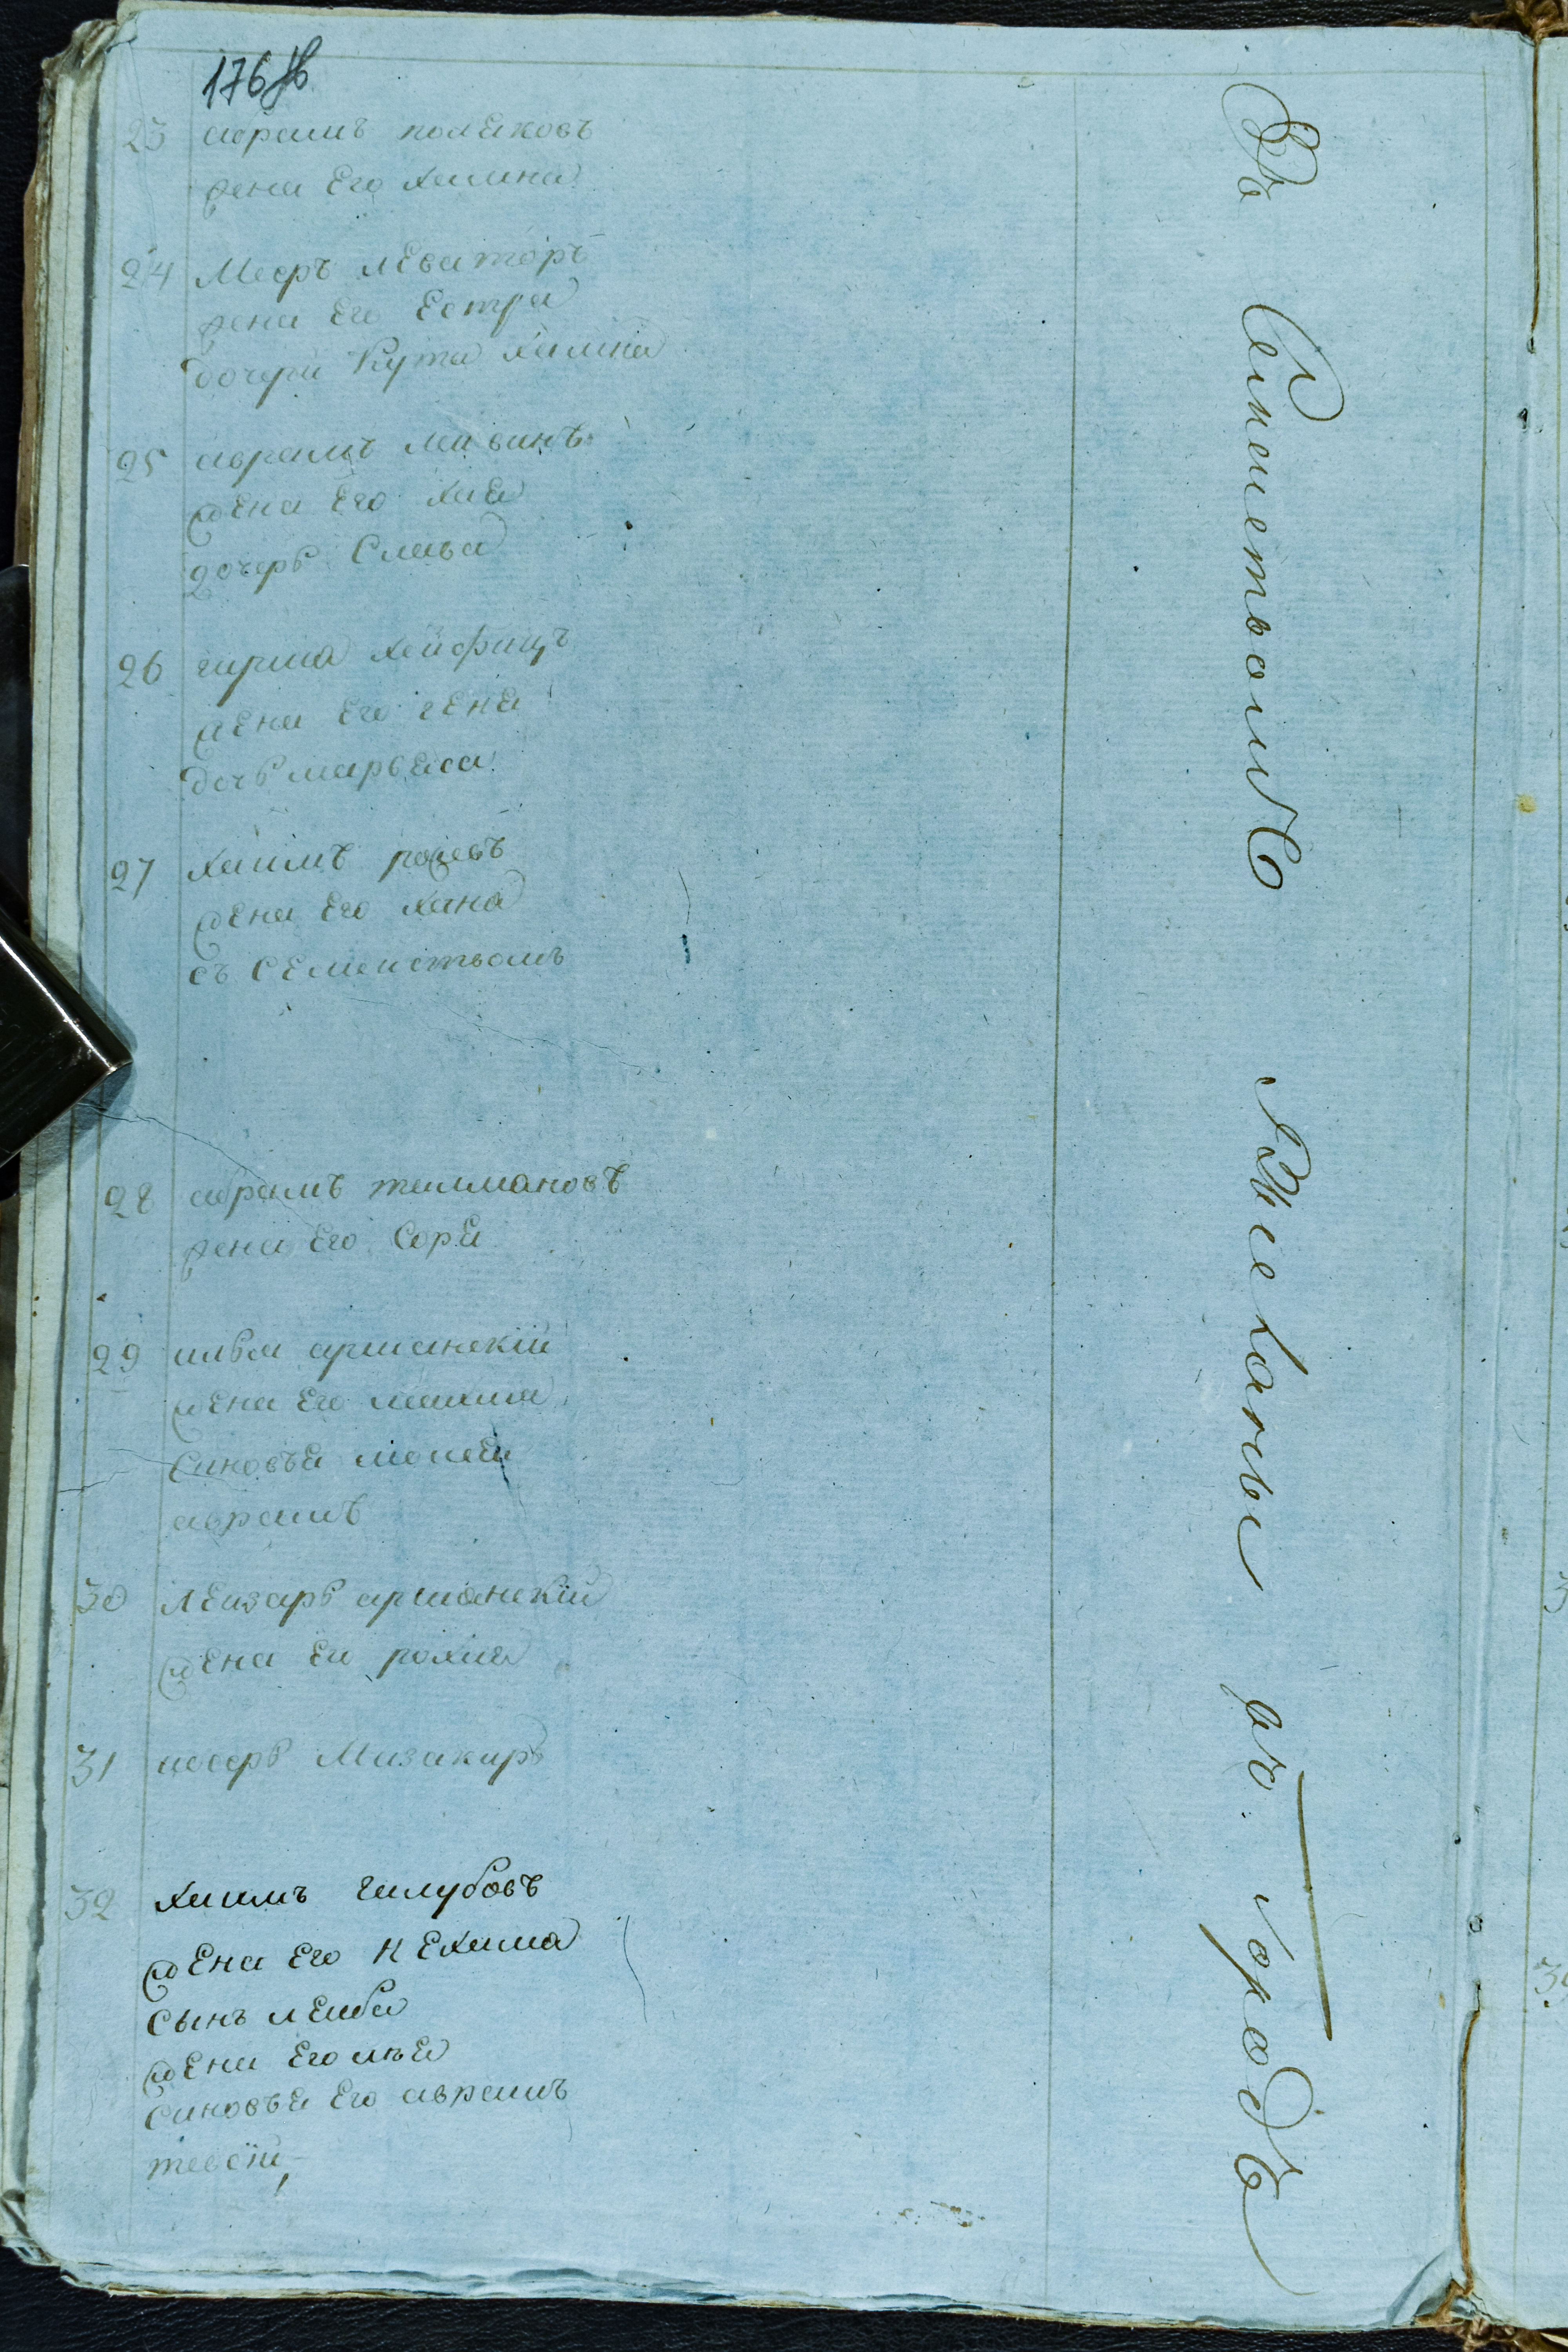 176 об
23 абрамъ поляковъ
жена Его хасина
24 Мееръ левиторъ
жена Его Естра
дочери Кута хасина
25 аврамъ масинъ
жена Его хая
дочерь Слава
26 гирша хейфицъ
жена Его геня
дочь марьяса
27 хаимъ
жена Его хана
съ семействомъ
28 абрамъ телмановъ
жена Его Сора
29 аршанскій
жена Его маша
синовья мовша
аврамъ
30 леизаръ аршанскій
жена Его рохля
31 Мизакиръ
32 хаимъ галубовъ
жена Его нехама
сынъ леиба
жена Его лея
синовья Его аврамъ
тевей
Съ Семействомъ Жиловъ въ Городѣ